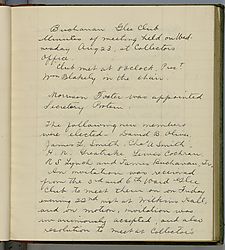 Buchanan Glee Club
Minutes of meeting held on Wed-
nesday Aug 23, at Collectors
Office
Club met at 8 o'clock, Prest
Wm Blakely in the chair.
Morrison Foster was appointed
Secretary Protem.
The following new members
were elected - David B. Oliver,
James L. Smith, Chs A Smith
H. R. Lewis Cochran
R S Lynch and James Buchanan, Jr.
An invitation was received
from the 3rd and 6th Ward Glee
Club to meet them on Friday
evening 22nd inst at Wilkins Hall,
and on motion, invitation was
unanimously accepted, and also
resolution to meet at Collector's